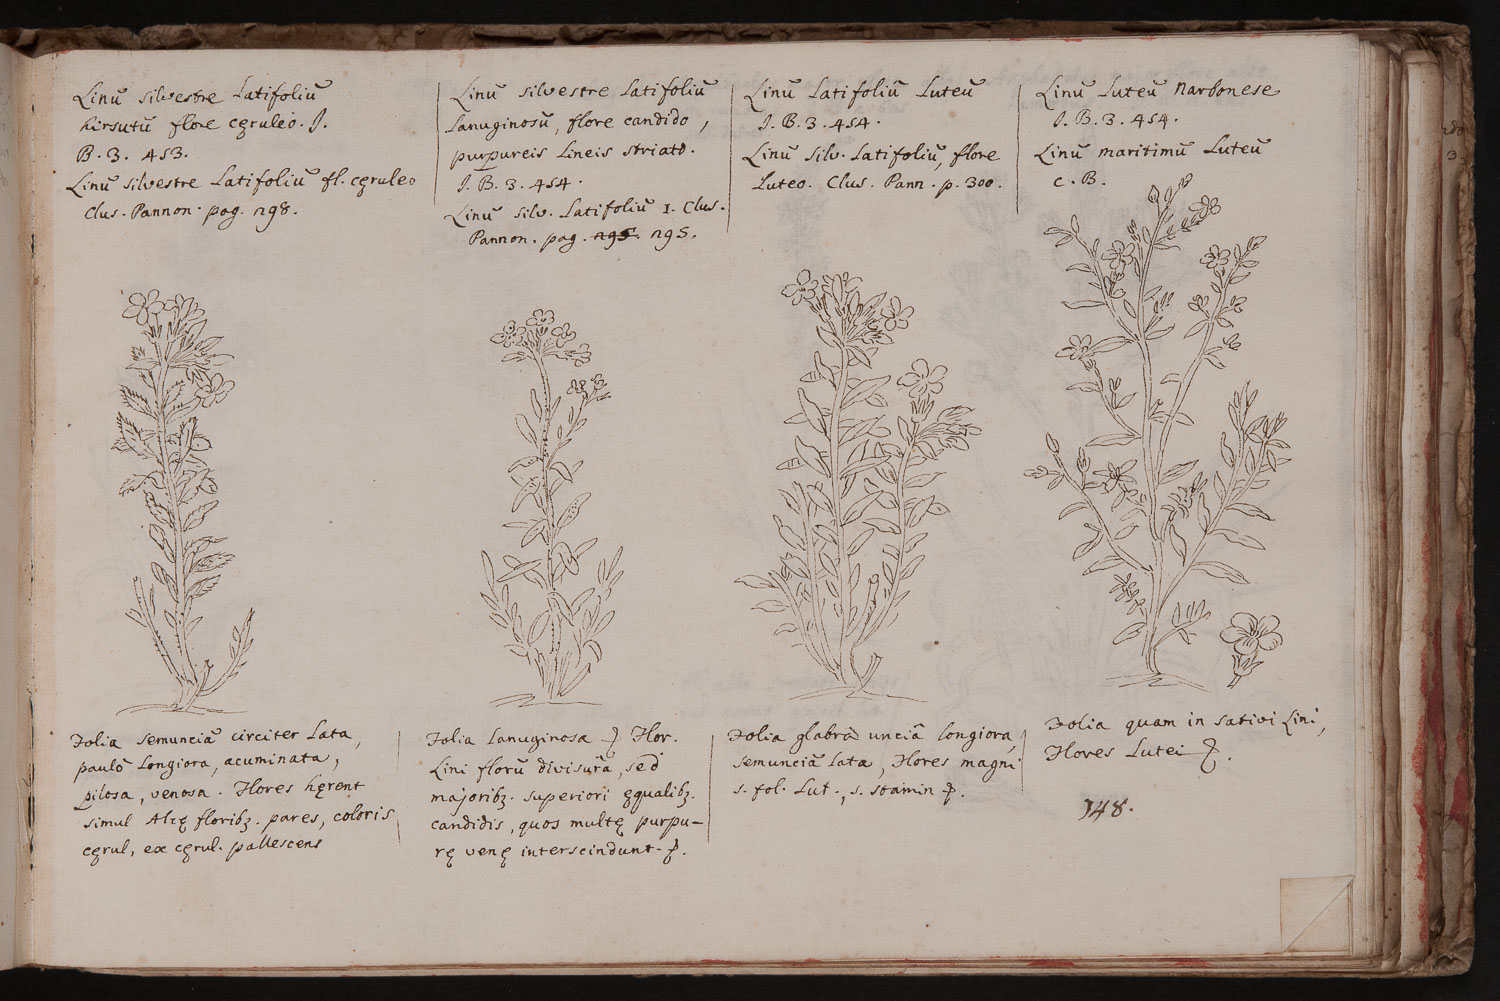 Linū silvestre Latifoliū
hirsutū flore cęruleo. J.
B. 3. 453.
Linū silvestre Latifoliū fl. cęruleo
Clus. Pannon. pag. 298.
Linū silvestre Latifoliū
Lanuginosū, flore candido,
purpureis Lineis striato.
J. B. 3. 454.
Linū silv. Latifoliū 1. Clus.
Pannon. pag. 295. 295.
Linū Latifoliū Luteū
J. B. 3. 454.
Linū silv. Latifoliū, flore
Luteo. Clus. Pann. p. 300.
Linū Luteū Narbonese
J. B. 3. 454.
Linū maritimū Luteū
C. B.
Folia semunciā circiter Lata,
paulò Longiora, acuminata,
pilosa, venosa. Flores hęrent
simul Alcę floribȝ. pares, coloris
cęrul, ex cęrul. pallescens
Folia Lanuginosa Flor.
Lini florū divisurā, sed
majoribȝ. superiori ęqualibȝ.
candidis, quos multę purpu-
rę venę interscindunt.
Folia glabra unciā longiora,
semunciā Lata, Flores magni
s. fol. Lut., s. stamin
Folia quam in sativi Lini,
Flores Lutei
148.